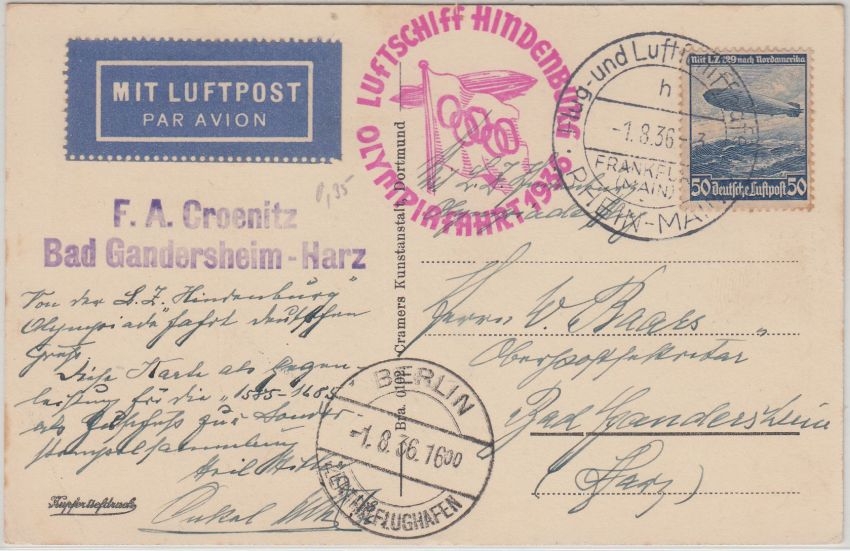 MIT LUFTPOST
PAR AVION
LUFTSCHIFF HINDENBURG
OLYMPIAFAHRT 1936
Flug- und Luftschiffhafen
h
-1.8.36
FRANKFURT
(MAIN)
RHEIN-MAIN
Mit LZ 129 nach Nordamerika
50 Deutsche Luftpost 50
0,35
F. A. Croenitz
Bad Gandersheim-Harz
Von der L.Z. Hindenburg"
Olympiade"fahrt deutschen
Gruß
Diese Karte als Gegen-
leistung für die "1585-1685
als Zuschuss zur Sonder-
stempelsammlung
Heil
Onkel
Kupfertiefdruck
Bra. 0102 Cramers Kunstanstalt, Dortmund
Mit L.Z. Hindenburg
Herrn W. Baars
Oberpostsekretär
Bad Gandersheim
(Harz)
BERLIN
-1.8.36.16 00
ZENTRALFLUGHAFEN